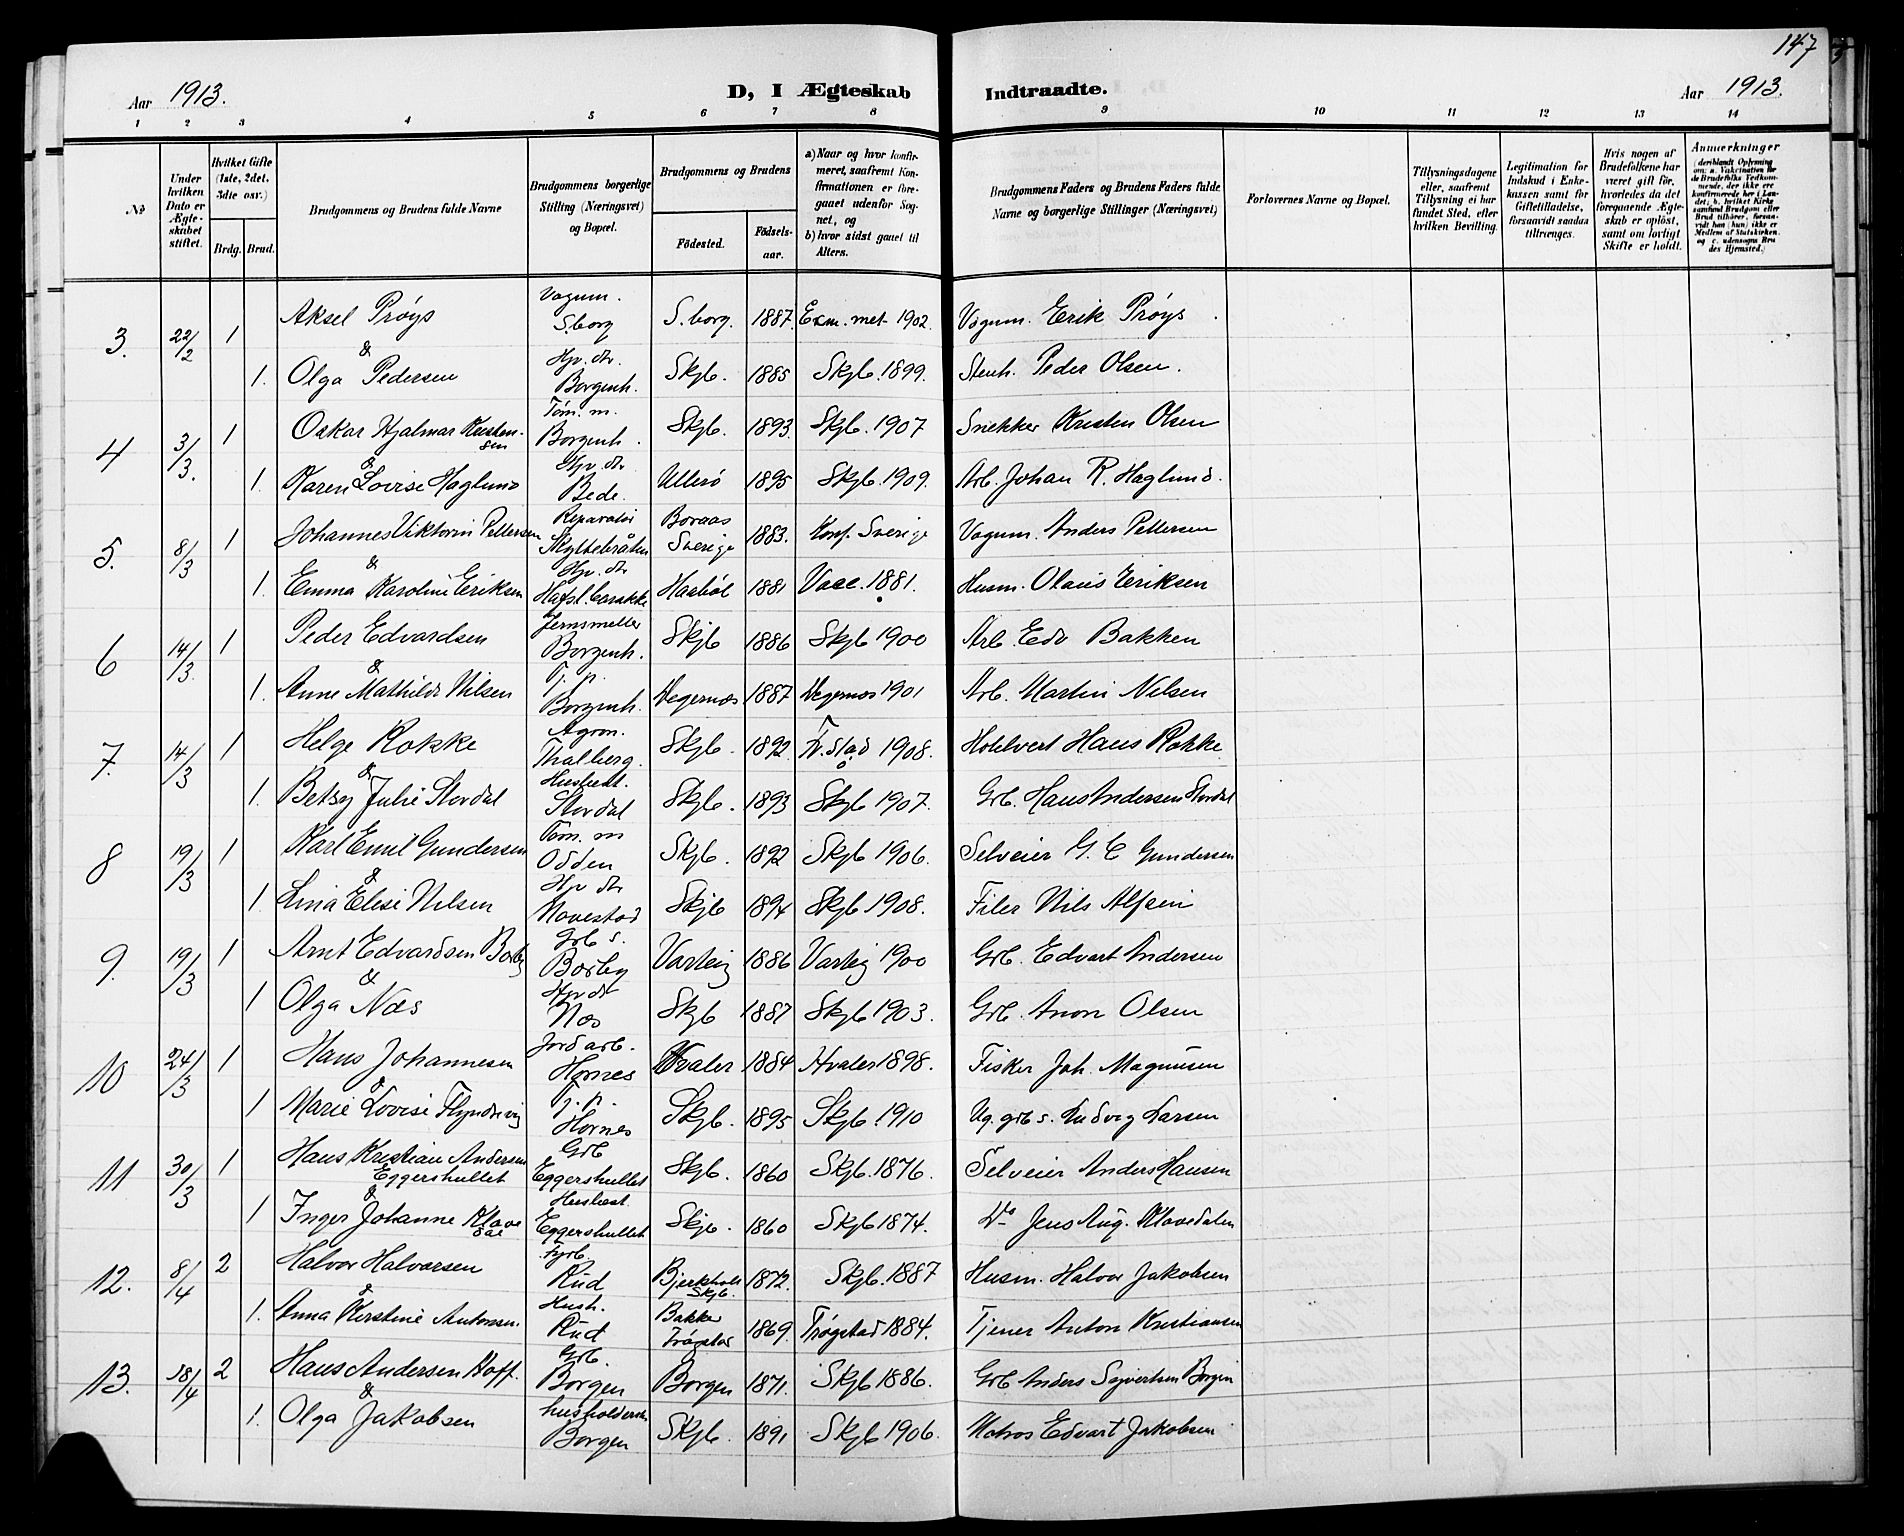 147
Aar 1913.
D, I Ægteskab Indtraadte.
Aar 1913.
1 2 3 4 5 6 7 8 9 10 11 12 13 14
No
Under hvilken Dato er Ægteskabet stiftet.
Hvilket Gifte (1ste, 2det, 3die osv.)
Brdg. Brud.
Brudgommens og Brudens fulde Navne
Brudgommens borgerlige Stilling (Næringsvei) og Bopæl.
Brudgommens og Brudens
Fødested.
Fødselsaar.
a) Naar og hvor konfirmeret, saafremt Konfirmationen er foregaaet udenfor Sognet, og
b) hvor sidst gaaet til Alters.
Brudgommens Faders og Brudens Faders fulde Navne og borgerlige Stillinger (Næringsvei)
Forlovernes Navne og Bopæl.
Tillysningsdagene eller, saafremt Tillysning ei har fundet Sted, efter hvilken Bevilling.
Legitimation for Indskud i Enkekassen samt for Giftetilladelse, forsaavidt saadan tiltrænges.
Hvis nogen af Brudefolkene har været gift før, hvorledes da det foregaaende Ægteskab er opløst, samt om lovligt Skifte er holdt.
Anmerkninger
3. 22/2 1 Aksel Prøys Vognm. S.borg S. borg. 1887 Exm. met 1902. Vognm. Erik Prøys
&
1. Olga Pedersen Hjv. dtr. Borgenh. Skjb. 1885 Skjb. 1899. Stenh. Peder Olsen.
4 3/3. 1 Oskar Hjalmar Kristensen Tøm. m. Borgenh. Skjb. 1893. Skjb. 1907 Snekker Kristen Olsen
&
1. Karen Lovise Haglund Hjv. dtr Bede. Ullerö 1895 Skjb. 1909. Arb. Johan R. Haglund.
5. 8/3 1 Johannes Viktorin Pettersen Reparatør Boraas Sverige 1883. Konf. Sverige Vognm. Anders Pettersen
&
1. Emma Karoline Eriksen Hjv. dtr Hafsl. barakke Hasböl 1881 Vacc. 1881. Husm. Olaus Eriksen
6 14/3. 1 Peder Edvardsen Jernsmelter Borgenh. Skjb 1886 Skjb 1900 Arb. Edv Bakken
&
1. Anne Mathilde Nilsen Tj. p. Borgenh. Vegernæs 1887 Vegernæs 1901 Arb. Martin Nilsen
7. 14/3 1 Helge Rokke Agron. Thalberg. Skjb. 1892 Fr. stad 1908. Hotelvert Hans Rokke
&
1. Betsy Julie Stordal Husbest. Stordal Skjb. 1893 Skjb 1907. Grb. Hans Andersen Stordal
8 19/3 1 Karl Emil Gundersen Tøm. m Odden Skjb. 1892 Skjb 1906. Selveier G. E Gundersen
&
1. Lina Elise Nilsen Hjv dtr Navestad Skjb 1894 Skjb 1908. Filer Nils Alfsen
9. 19/3 1 Arnt Edvardsen Borby Grb s. Borby Varteig 1886 Varteig 1900 Grb. Edvart Andersen
&
1 Olga Næs Hjv dt Næs Skjb 1887 Skjb 1903. Grb. Anon Olsen
10 24/3 1 Hans Johannesen Jordarb. Hornes Hvaler 1884 Hvaler 1898. Fisker Joh. Magnusen
&
1 Marie Lovise Flyndrevig Tj. p. Hornes Skjb. 1895 Skjb. 1910 Ug. grb s. Ludvig Larsen
11 30/3 1 Hans Kristian Andersen Eggershullet Grb Eggershullet Skjb. 1860 Skjb. 1876. Selveier Anders Hansen
&
1 Inger Johanne Klavedal Husbest. Eggershullet Skjb. 1860 Skjb 1874. Do Jens Aug. Klavedalen
12. 8/4 2 Halvor Halvorsen Fyrb. Rud Bjerkholt Skjb. 1872. Skjb. 1887 Husm. Halvor Jakobsen
&
1. Anna Kirstine Antonsen Hush. Rud Bakker Trøgstad 1869. Trøgstad 1884. Tjener Anton Kristiansen
13. 18/4 2 Hans Andersen Hoff. Grb. Borgen Borgen 1871. Skjb 1886. Grb Anders Syvertsen Borgen
&
1. Olga Jakobsen husholderske Borgen Skjb. 1891 Skjb 1906. Matros Edvart Jakobsen